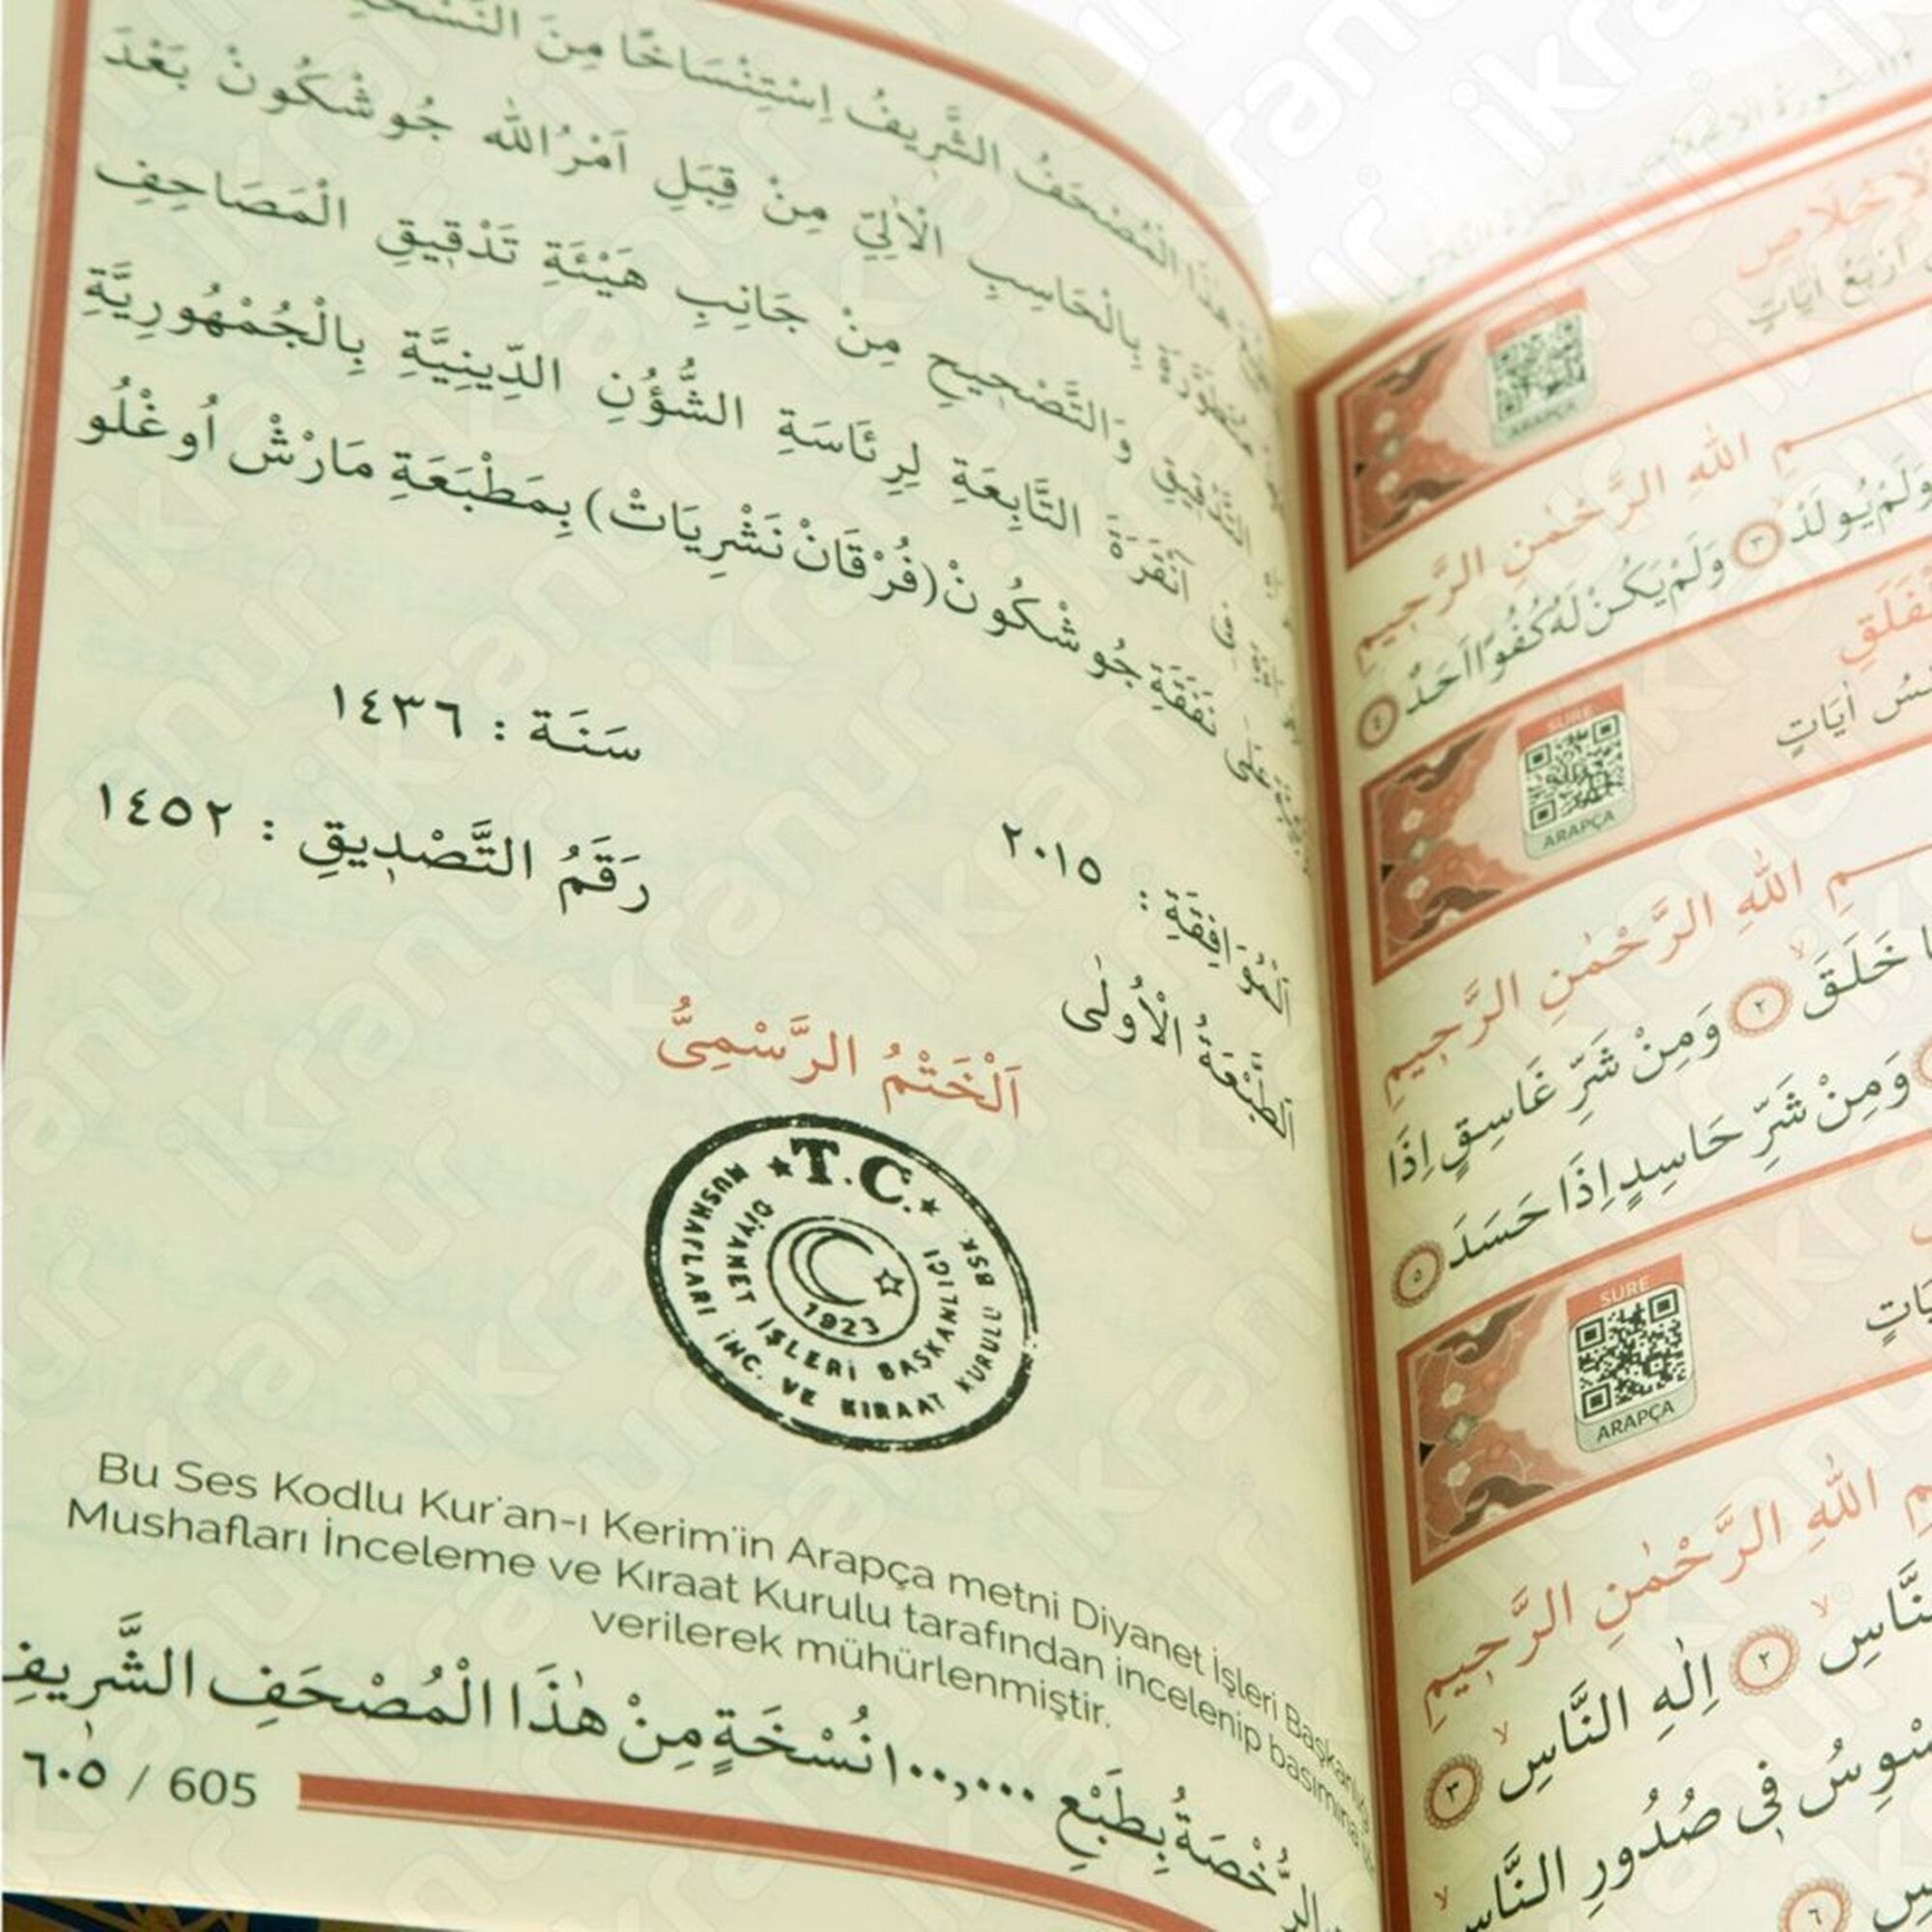 الْمُصْحَفُ الشَّرِيفُ اِسْتِنْسَاخًا مِنَ
بِالْحَاسِبِ الْاٰلِيِّ مِنْ قِبَلِ اَمْرُاللّٰه جُوشْكُونْ بَعْدَ
التَّدْقِيقِ وَالتَّصْحِيحِ مِنْ جَانِبِ هَيْئَةِ تَدْقِيقِ الْمَصَاحِفِ
التَّابِعَةِ لِرِئَاسَةِ الشُّؤُنِ الدِّينِيَّةِ بِالْجُمْهُورِيَّةِ
اَنْقَرَةْ
عَلٰى نَفَقَةِ جُوشْكُونْ (فُرْقَانْ نَشْرِيَاتْ) بِمَطْبَعَةِ مَارْشْ اُوغْلُو
سَنَة : ١٤٣٦
الْمُوَافِقَةِ : ٢٠١٥
رَقَمُ التَّصْدِيقِ : ١٤٥٢
اَلطَّبْعَةُ الْاُولٰى
اَلْخَتْمُ الرَّسْمِىُّ
T.C.
MUSHAFLARI İNC. VE KIRAAT KURULU BŞK.
DİYANET İŞLERİ BAŞKANLIĞI
1923
Bu Ses Kodlu Kur'an-ı Kerim'in Arapça metni Diyanet İşleri Başkanlığı
Mushafları İnceleme ve Kıraat Kurulu tarafından incelenip basımına
verilerek mühürlenmiştir.
الرُّخْصَةُ بِطَبْعِ ١٠٠,٠٠٠ نُسْخَةٍ مِنْ هٰذَا الْمُصْحَفِ الشَّرِيفِ
٦٠٥ / 605
سُورَةُ الْاِخْلَاصِ
اَرْبَعُ اٰيَاتٍ
ARAPÇA
اللّٰهِ الرَّحْمٰنِ الرَّحِيمِ
وَلَمْ يُولَدْ ٣ وَلَمْ يَكُنْ لَهُ كُفُوًا اَحَدٌ ٤
اٰيَاتٍ
SURE
ARAPÇA
اللّٰهِ الرَّحْمٰنِ الرَّحِيمِ
خَلَقَ ٢ وَمِنْ شَرِّ غَاسِقٍ اِذَا
وَمِنْ شَرِّ حَاسِدٍ اِذَا حَسَدَ ٥
SURE
ARAPÇA
اللّٰهِ الرَّحْمٰنِ الرَّحِيمِ
النَّاسِ ٢ اِلٰهِ النَّاسِ ٣
فِى صُدُورِ النَّاسِ
٦
ikranur